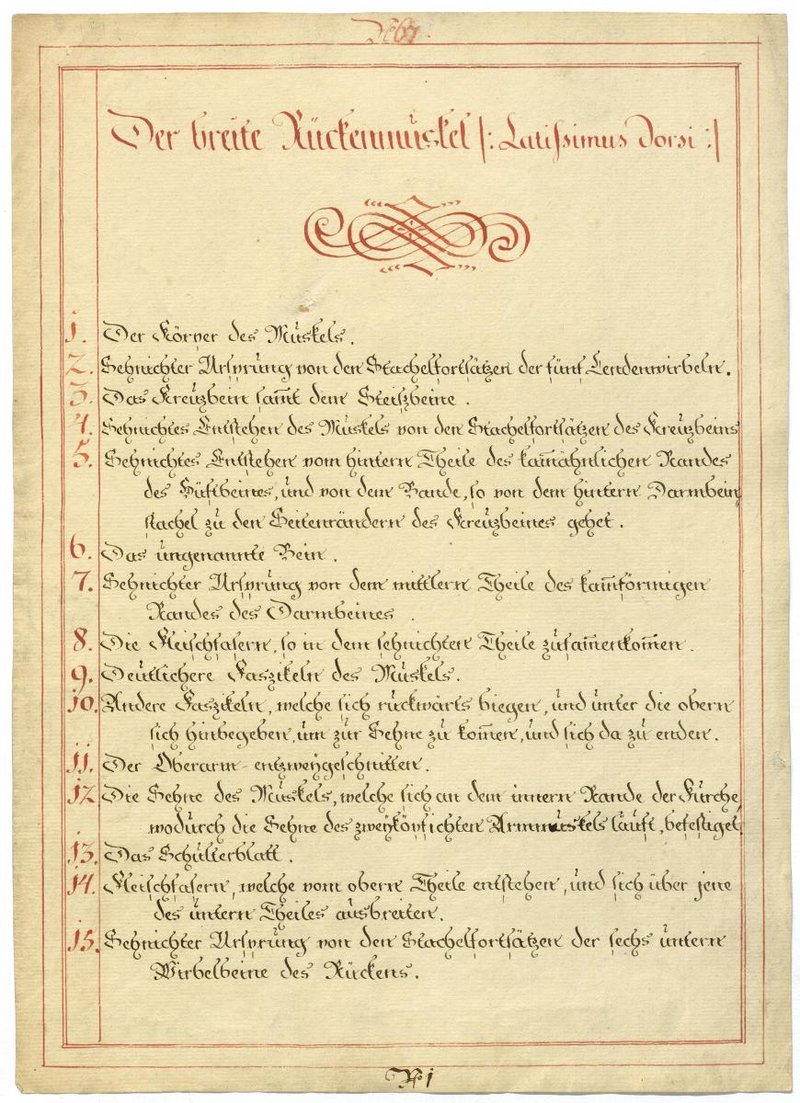 Der breite Rückenmuskel |: Latissimus Dorsi :|
1. Der Körper des Muskels.
2. Sehnichter Ursprung von den Stachelfortsätzen der fünf Lendenwirbeln.
3. Das Kreuzbein sam̅t dem Steiszbeine.
4. Sehnichtes Entstehen des Muskels von den Stachelfortsätzen des Kreuzbeins
5. Sehnichtes Entstehen vom hintern Theile des kam̅ähnlichen Randes
des Hüftbeines, und von dem Bande, so von dem hintern Darmbein
stachel zu den Seitenrändern des Kreuzbeines gehet.
6. Das ungenannte Bein.
7. Sehnichter Ursprung von dem mittlern Theile des kam̅förmigen
Randes des Darmbeines.
8. Die Fleischfasern, so in dem sehnichten Theile zusam̅enkom̅en.
9. Deutlichere Faszikeln des Muskels.
10. Andere Faszikeln, welche sich rückwärts biegen, und unter die obern
sich hinbegeben, um zur Sehne zu kom̅en, und sich da zu enden.
11. Der Oberarm entzweygeschnitten.
12 Die Sehne des Muskels, welche sich an dem innern Rande der Furche,
wodurch die Sehne des zweyköpfichten Armmuskels läuft, befestiget.
13. Das Schulterblatt.
14. Fleischfasern, welche vom obern Theile entstehen, und sich über jene
des untern Theiles ausbreiten.
15. Sehnichter Ursprung von den Stachelfortsätzen der sechs untern
Wirbelbeine des Rückens.